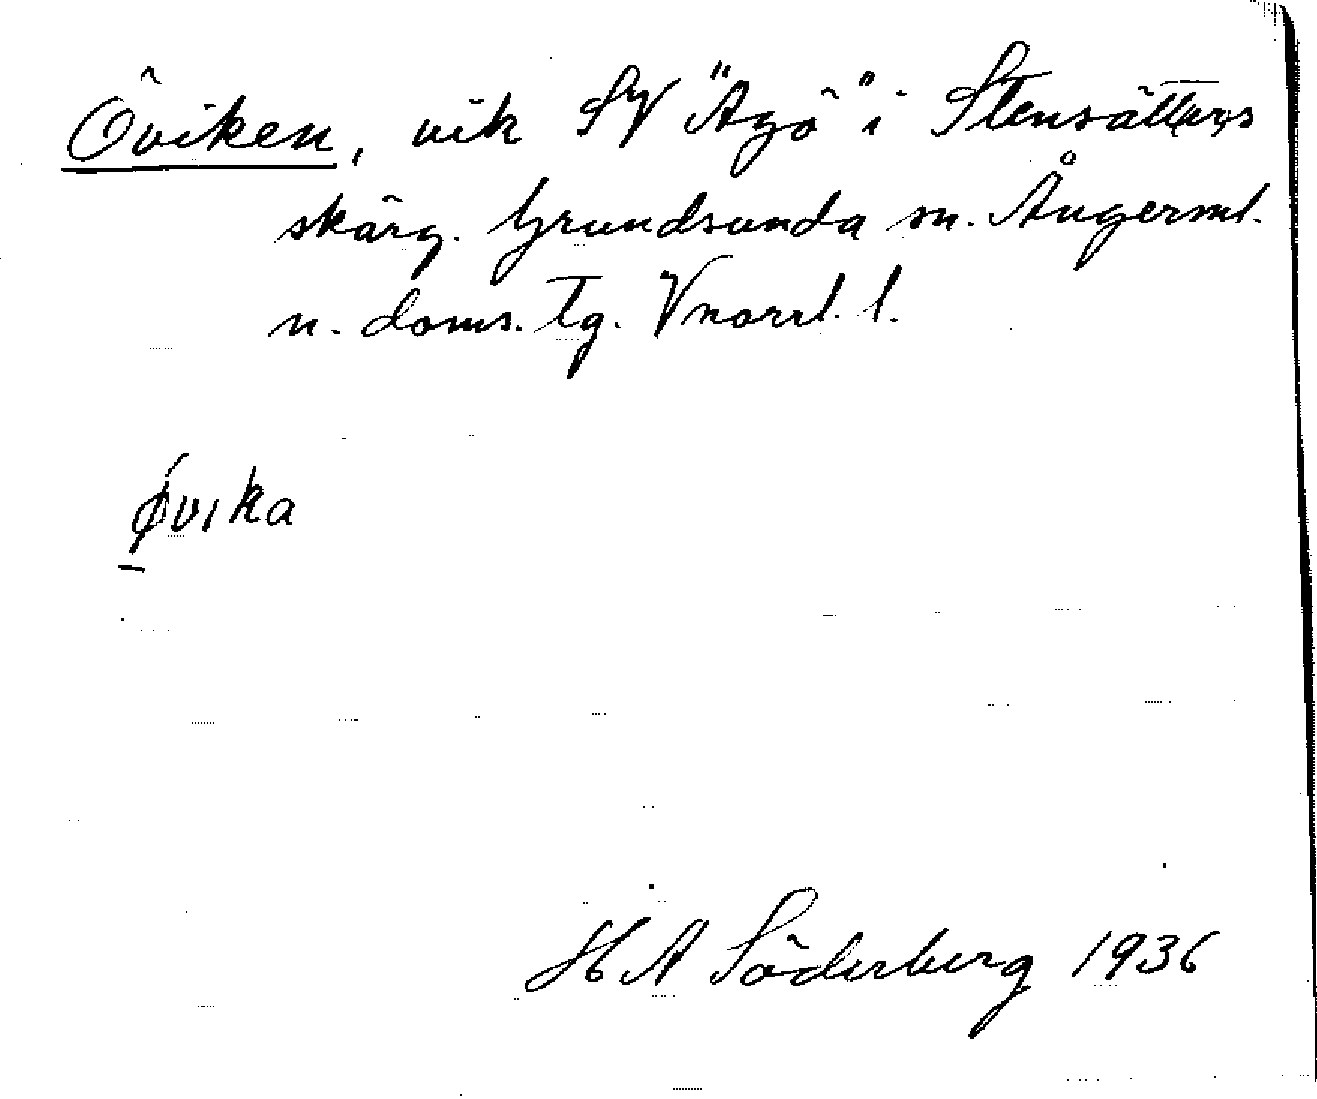 Öviken, vik SV "Agö" i Stensätters
skärg. Grundsunda sn. Ångerml.
n. doms. tg. Vnorrl. l.
øvika
H A Söderberg 1936